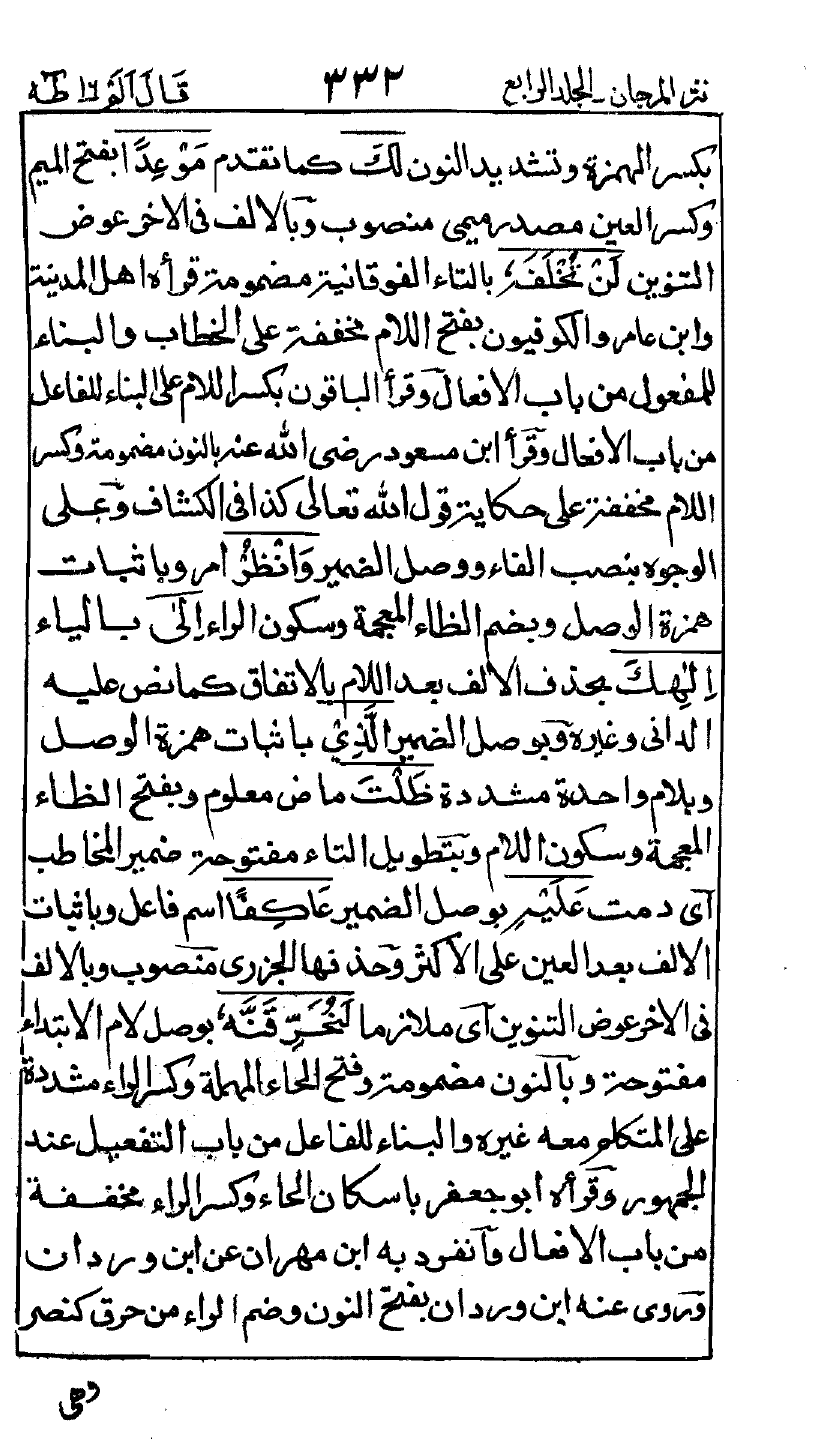 نثر المرجان ـ المجلد الرابع ٣٣٢ قَالَ أَلَمْ ١٦ طٰهٰ
بكسر الهمزة وتشديد النون لَكَ كما تقدم مَوْعِدًا بفتح الميم
وكسر العين مصدر ميمى منصوب وبالالف فى الاخر عوض
التنوين لَنْ تُخْلَفَهٗ بالتاء الفوقانية مضمومة قرأه اهل المدينة
وابن عامر والكوفيون بفتح اللام مخففة على الخطاب والبناء
للمفعول من باب الافعال وقرأ الباقون بكسر اللام على البناء للفاعل
من باب الافعال وقرأ ابن مسعود رضى الله عنه بالنون مضمومة وكسر
اللام مخففة على حكاية قول الله تعالى كذا فى الكشاف وعلى
الوجوه بنصب الفاء ووصل الضمير وَانْظُرْ أمر وباثبات
همزة الوصل وبضم الظاء المعجمة وسكون الراء اِلٰى بالياء
اِلٰهِكَ بحذف الالف بعد اللام بالاتفاق كما نص عليه
الدانى وغيره وبوصل الضمير الَّذِيْ باثبات همزة الوصل
وبلام واحدة مشددة ظَلْتَ ماض معلوم وبفتح الظاء
المعجمة وسكون اللام وبتطويل التاء مفتوحة ضمير المخاطب
أى دمت عَلَيْهِ بوصل الضمير عَاكِفًا اسم فاعل وباثبات
الالف بعد العين على الأكثر وحذفها الجزرى منصوب وبالالف
فى الاخر عوض التنوين أى ملازما لَنُحَرِّقَنَّهٗ بوصل لام الابتداء
مفتوحة وبالنون مضمومة وفتح الحاء المهملة وكسر الراء مشددة
على المتكلم معه غيره والبناء للفاعل من باب التفعيل عند
الجمهور وقرأه أبو جعفر باسكان الحاء وكسر الراء مخففة
من باب الافعال وانفرد به ابن مهران عن ابن وردان
وروى عنه ابن وردان بفتح النون وضم الراء من حرق كنصر
وهى